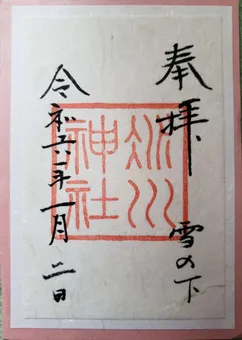 奉拝
雪の下
氷川
神社
令和六年一月二日